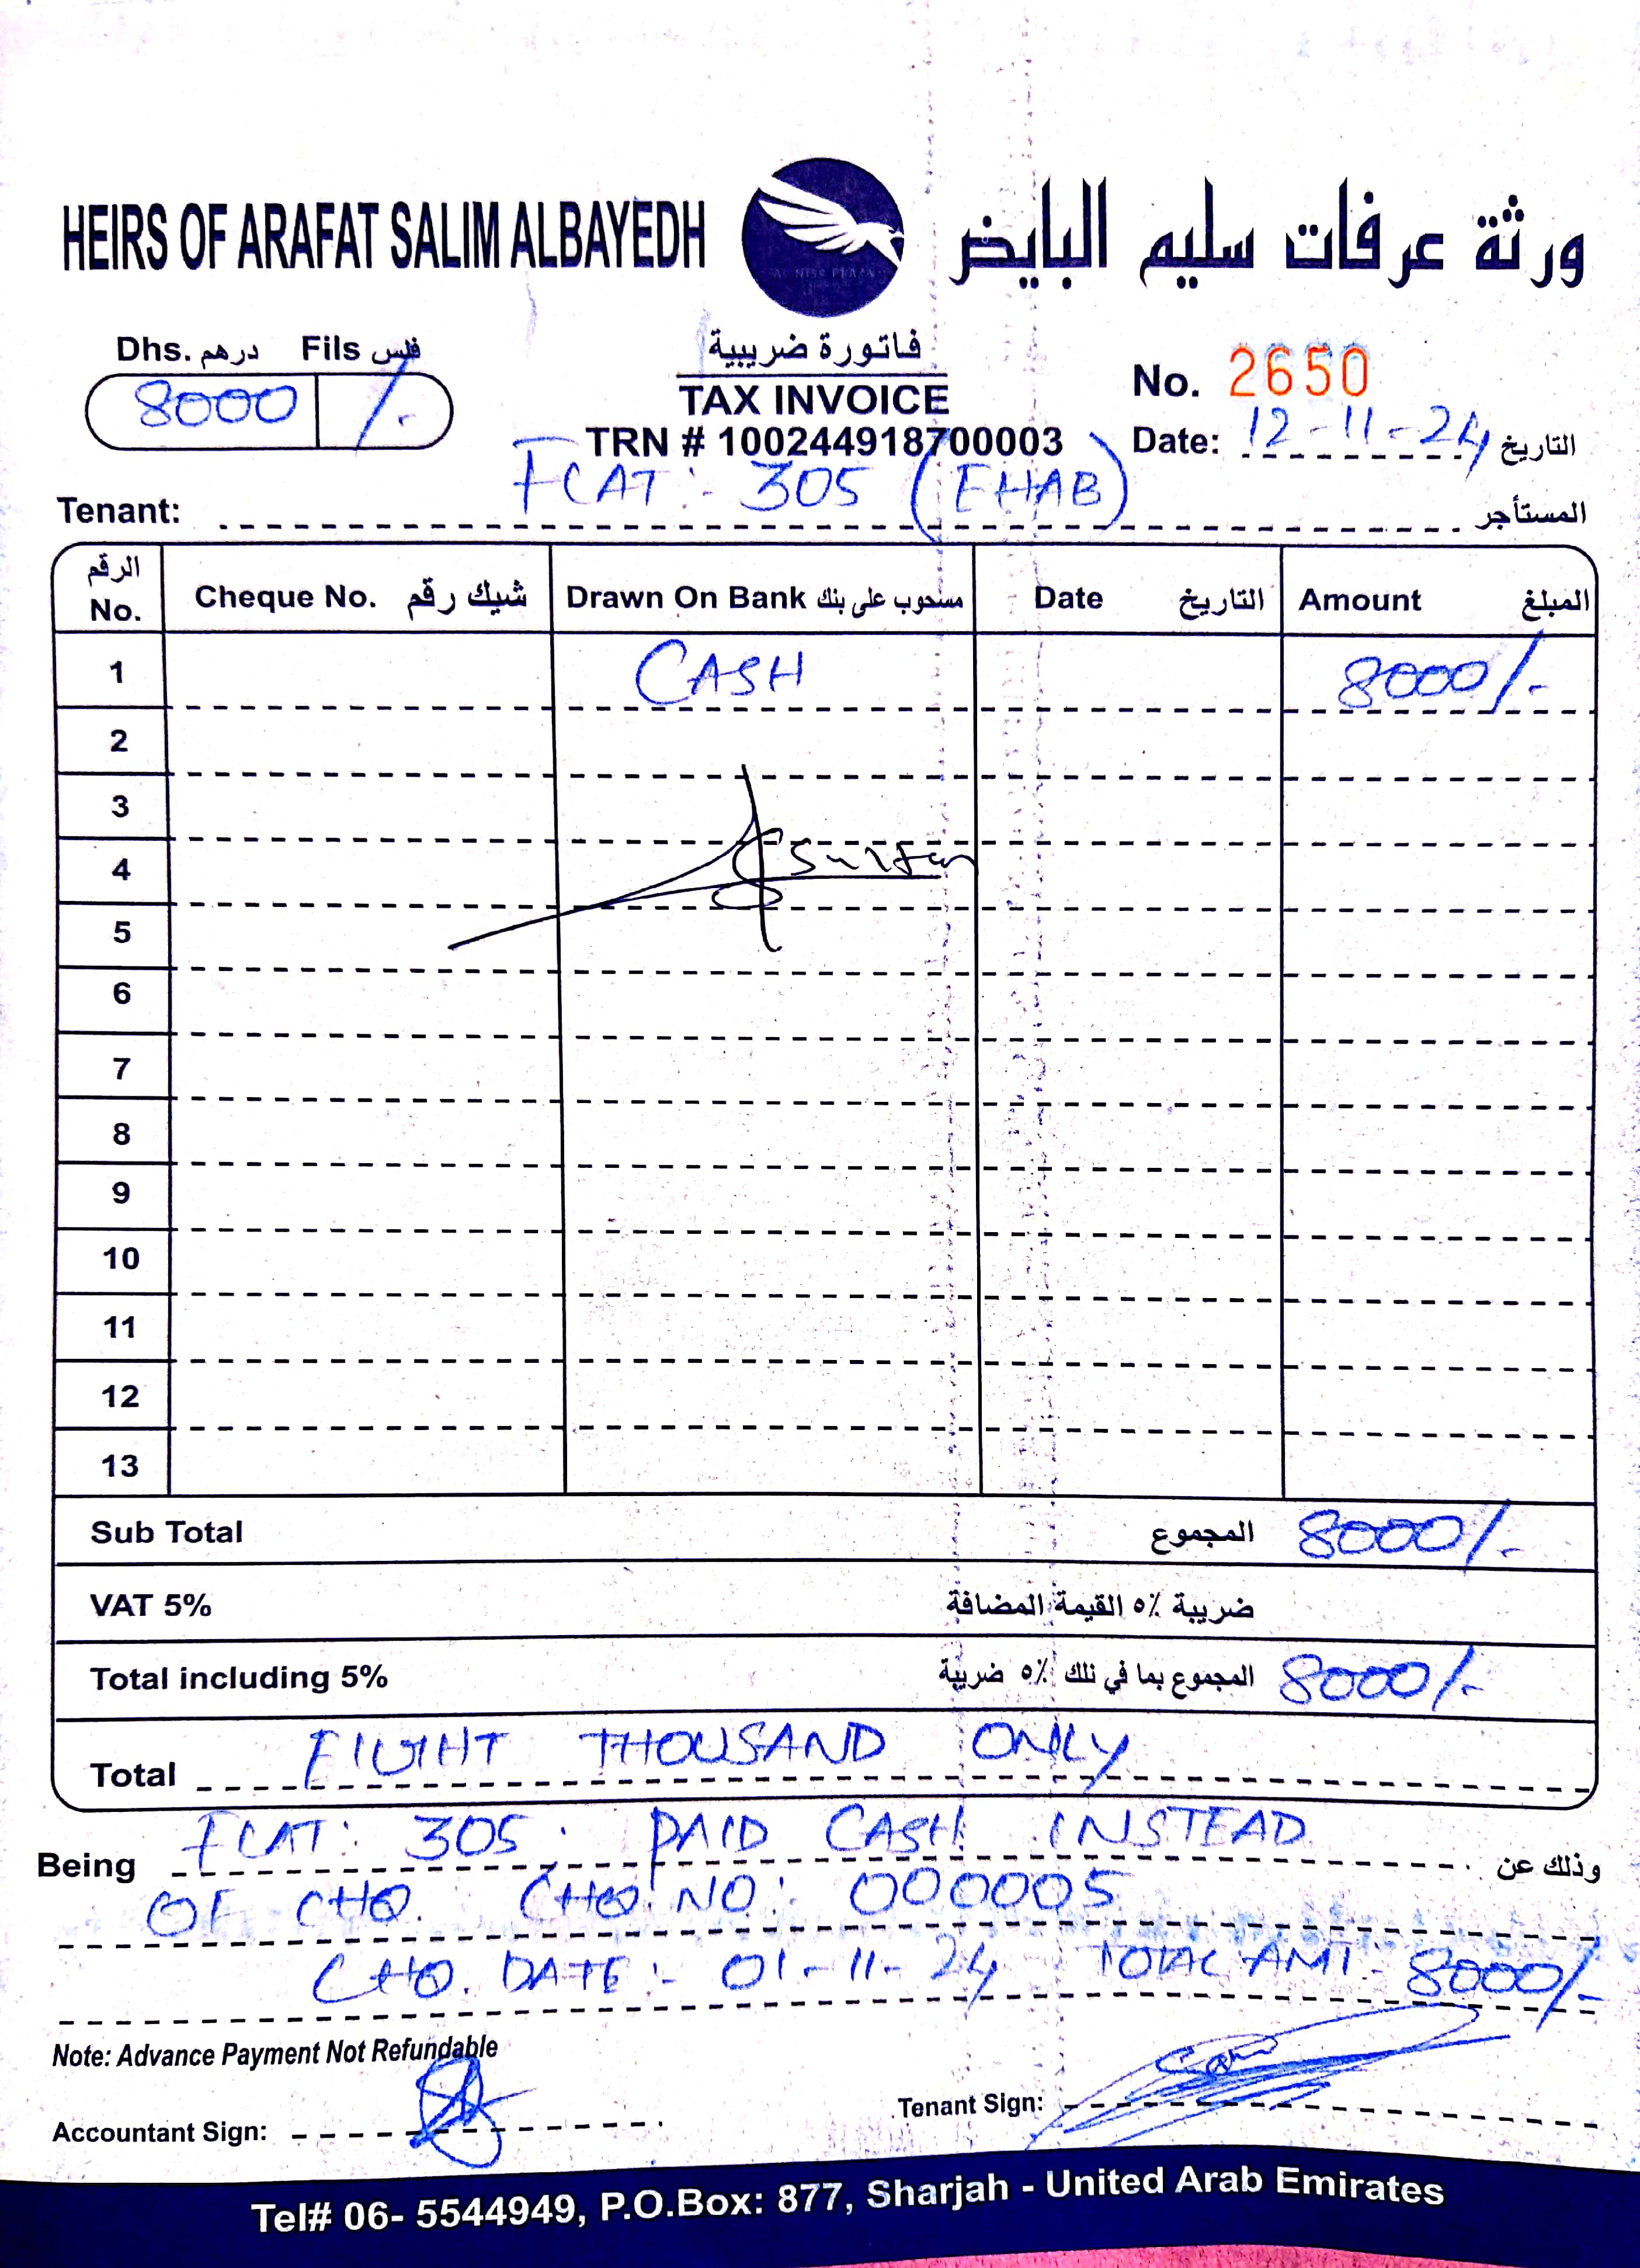 HEIRS OF ARAFAT SALIM ALBAYEDH ورثة عرفات سليم البايض
Dhs. درهم Fils فلس
8000 /-
فاتورة ضريبية
TAX INVOICE
TRN # 100244918700003
No. 2650
Date: 12-11-24 التاريخ
Tenant: FLAT:- 305 (EHAB) المستأجر
الرقم No. Cheque No. شيك رقم Drawn On Bank مسحوب على بنك Date التاريخ Amount المبلغ
1 CASH 8000/-
2
3
4 Sultan
5
6
7
8
9
10
11
12
13
Sub Total المجموع 8000/-
VAT 5% ضريبة ٥٪ القيمة المضافة
Total including 5% المجموع بما في ذلك ٥٪ ضريبة 8000/-
Total EIGHT THOUSAND ONLY
Being FLAT: 305. PAID CASH INSTEAD وذلك عن
OF CHQ. CHQ. NO: 000005
CHQ. DATE:- 01-11-24 TOTAL AMT:- 8000/-
Note: Advance Payment Not Refundable
Accountant Sign: Tenant Sign:
Tel# 06- 5544949, P.O.Box: 877, Sharjah - United Arab Emirates